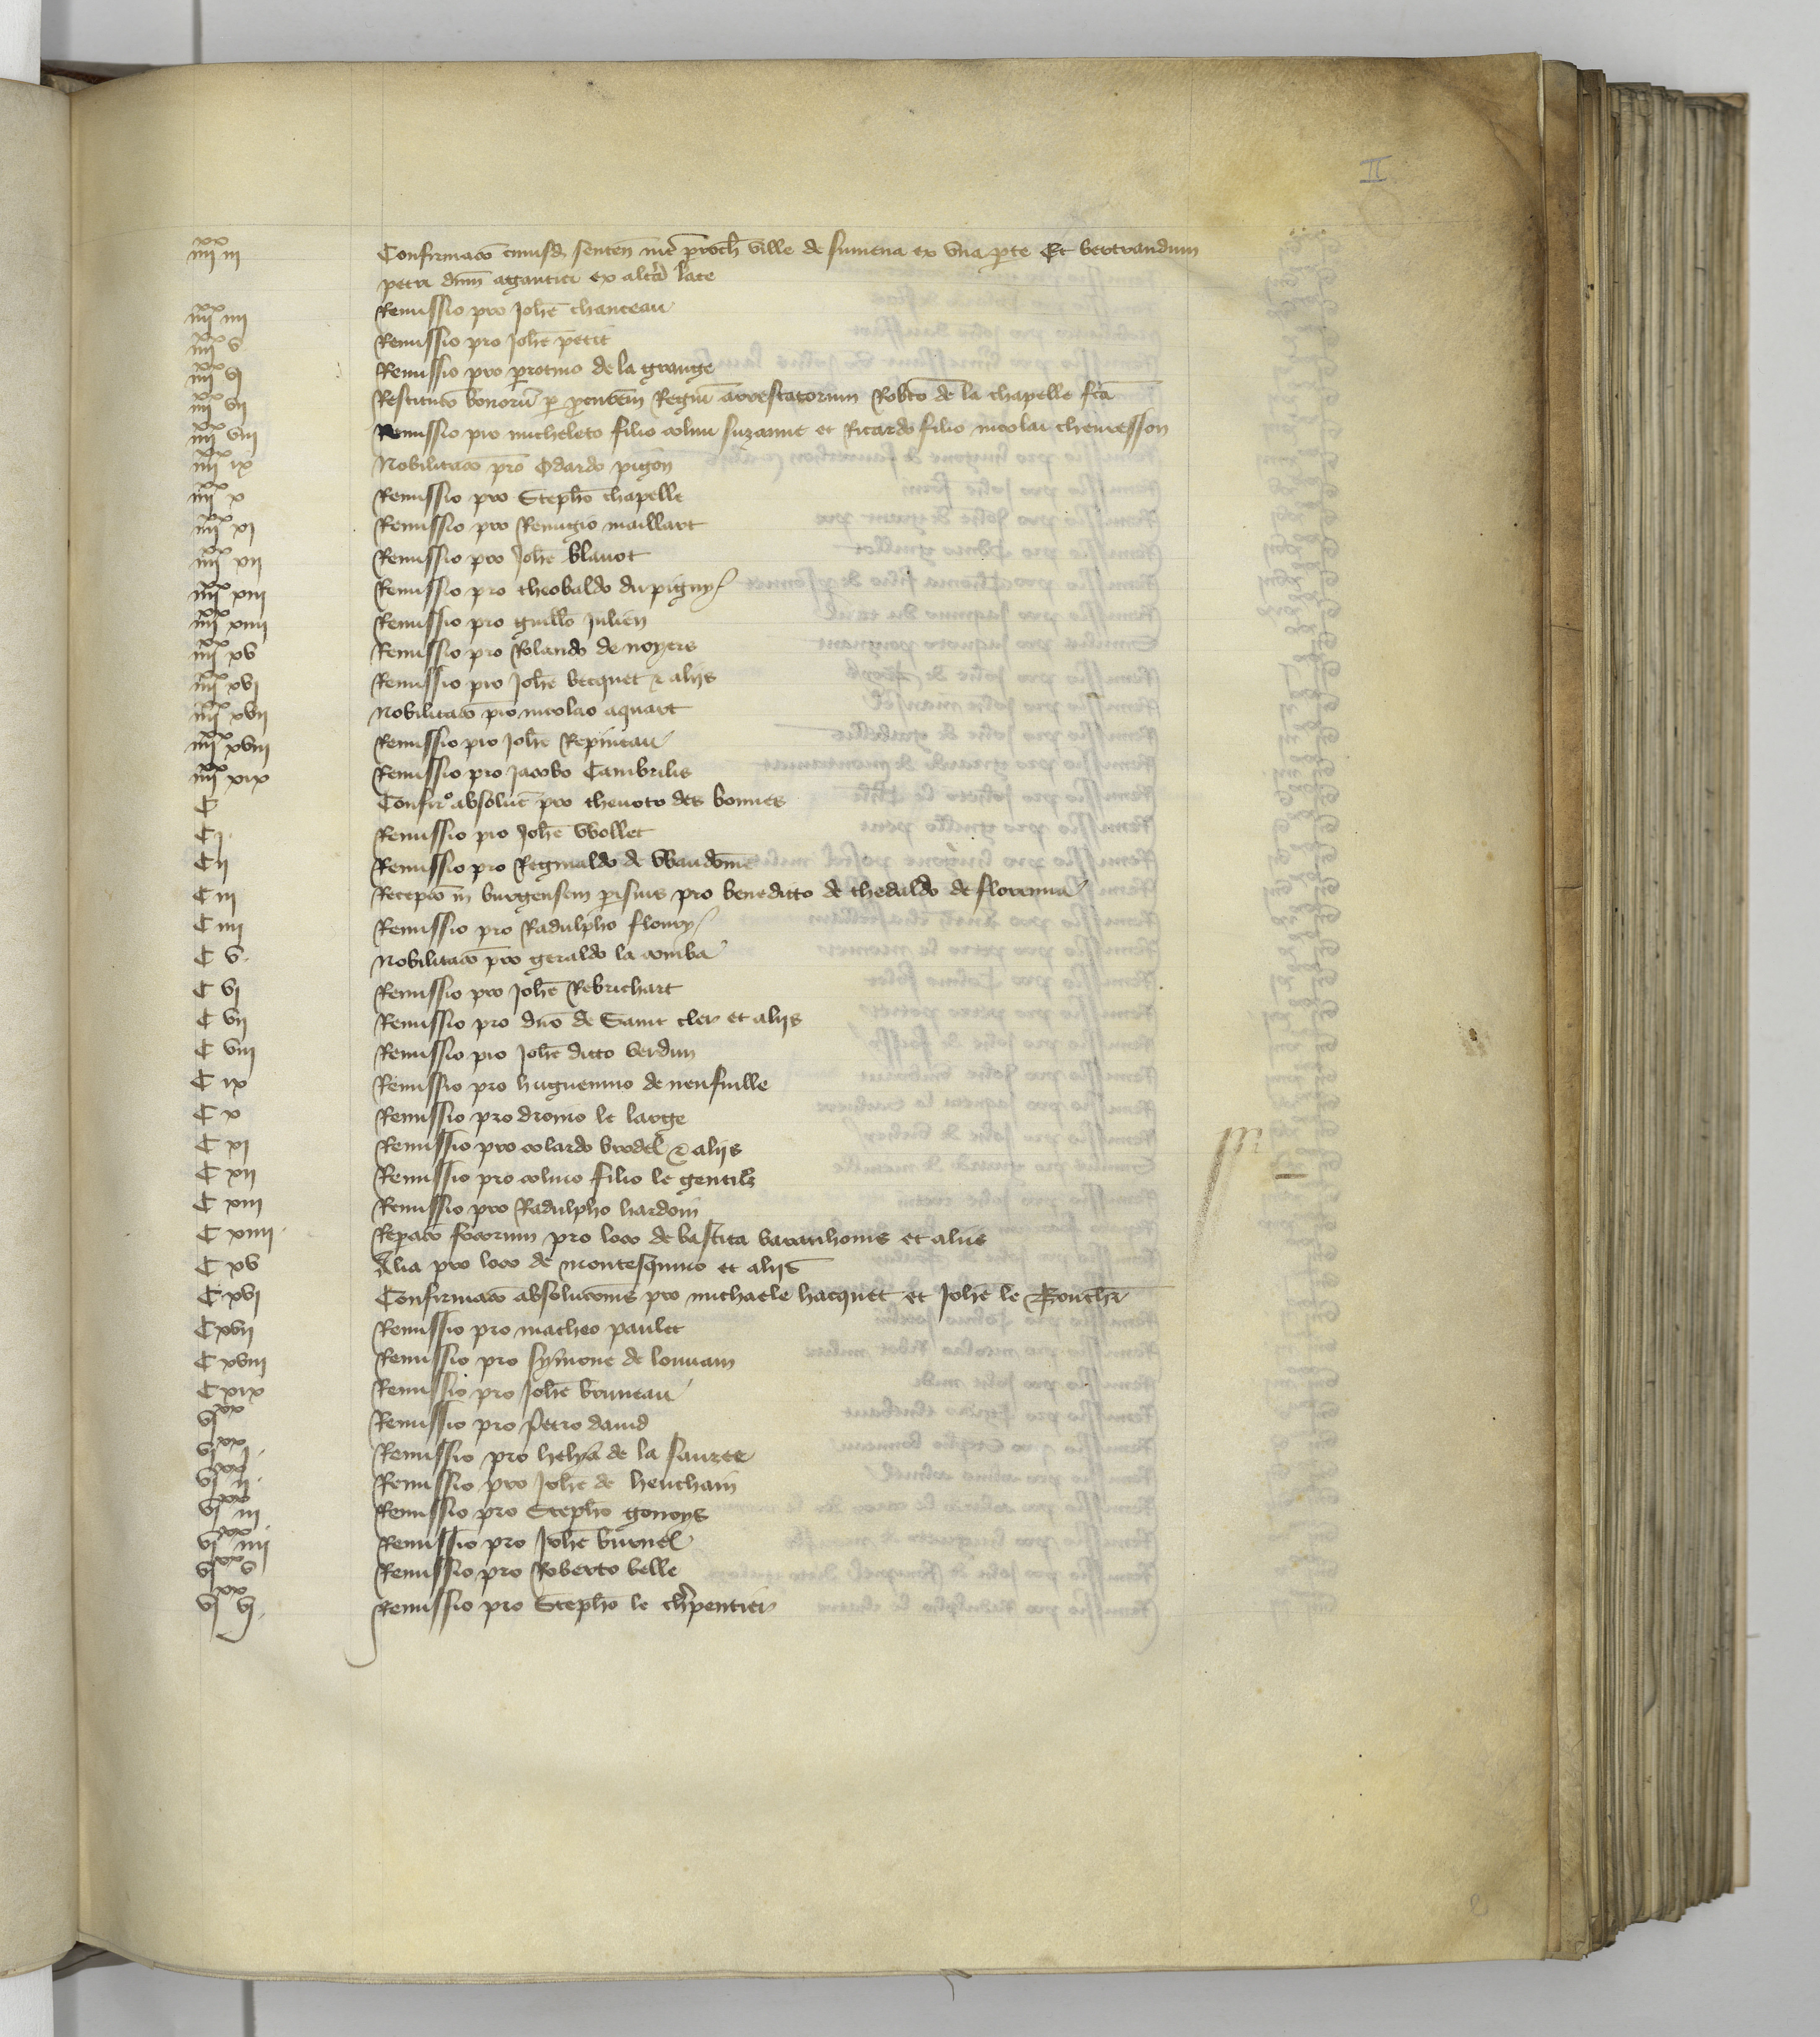 II
iiii xx iii Confirmacō cuiusd senten int proch ville de sumena ex una pte Et bertrandum
petri dnm agantici ex altera late
iiii xx iiii Remissio pro Johē chanceau
iiii xx v Remissio pro Johē petit
iiii xx vi Remissio pro perotino de la grange
iiii xx vii Restitucō bonorū per Regiū arrestatorum Robto de la chapelle fcā
iiii xx viii Remissio pro micheleto filio colini suzanne et Ricardo filio nicolai chenesson
iiii xx ix Nobilitacō pro Odardo pigon
iiii xx x Remissio pro Stepho chapelle
iiii xx xi Remissio pro Remigio maillart
iiii xx xii Remissio pro Johē blavot
iiii xx xiii Remissio pro theobaldo du pigny
iiii xx xiiii Remissio pro guillō Julien
iiii xx xv Remissio pro Rolando de noyers
iiii xx xvi Remissio pro Johē becquet et aliis
iiii xx xvii Nobilitacō pro nicolao aquart
iiii xx xviii Remissio pro Johē Repineau
iiii xx xix Remissio pro Jacobo Cambrilis
C Confirº absolut pro thevoto des bonnes
C j Remissio pro Johē Wollet
C ii Remissio pro Reginaldo de Wandome
C iii Recepcō in burgensem parisius pro benedicto de thedaldo de florencia
C iiii Remissio pro Radulpho floury
C v Nobilitacō pro geraldo la comba
C vi Remissio pro Johē Rebrichart
C vii Remissio pro dno de Saint cler et aliis
C viii Remissio pro Johē dicto verdun
C ix Remissio pro huguenino de neufville
C x Remissio pro dronio le large
C xi Remissio pro colardo brodel et aliis
C xii Remissio pro colino filio le gentilz
C xiii Remissio pro Radulpho hardoin
C xiiii Repacō focorum pro loco de bastita varanhonis et aliis
C xv Alia pro loco de montesquino et aliis
C xvi Confirmacō absolucionis pro michaele hacquet et Johē le Bouchr
C xvii Remissio pro matheo paulet
C xviii Remissio pro Symone de louvain
C xix Remissio pro Johē bruneau
vi xx Remissio pro Petro david
vi xx i Remissio pro helya de la sauzee
vi xx ii Remissio pro Johē de heuchain
vi xx iii Remissio pro Stepho gonoys
vi xx iiii Remissio pro Johē burnel
vi xx v Remissio pro Roberto belle
vi xx vi Remissio pro Stepho le chrpentier